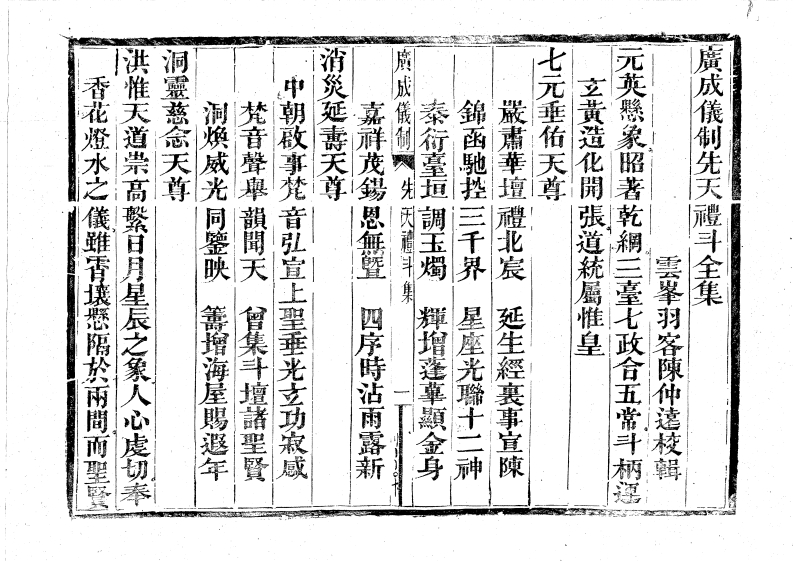 廣成儀制先天禮斗全集
雲峯羽客陳仲遠校輯
元英懸象昭著乾綱三臺七政合五常斗柄運
玄黃造化開張道統屬惟皇
七元垂佑天尊
嚴肅華壇禮北宸　延生經裏事宣陳
錦函馳控三千界　星座光聯十二神
泰衍臺垣調玉燭　輝增蓬蓽顯金身
嘉祥茂錫恩無暨　四序時沾雨露新
廣成儀制　先天禮斗集　一
消災延壽天尊
中朝啟事梵音弘宣上聖垂光玄功寂感
梵音聲舉韻聞天　曾集斗壇諸聖賢
洞煥威光同鑒映　籌增海屋賜遐年
洞靈慈念天尊
洪惟天道崇高繫日月星辰之象人心虔切奉
香花燈水之儀雖霄壤懸隔於兩間而聖賢